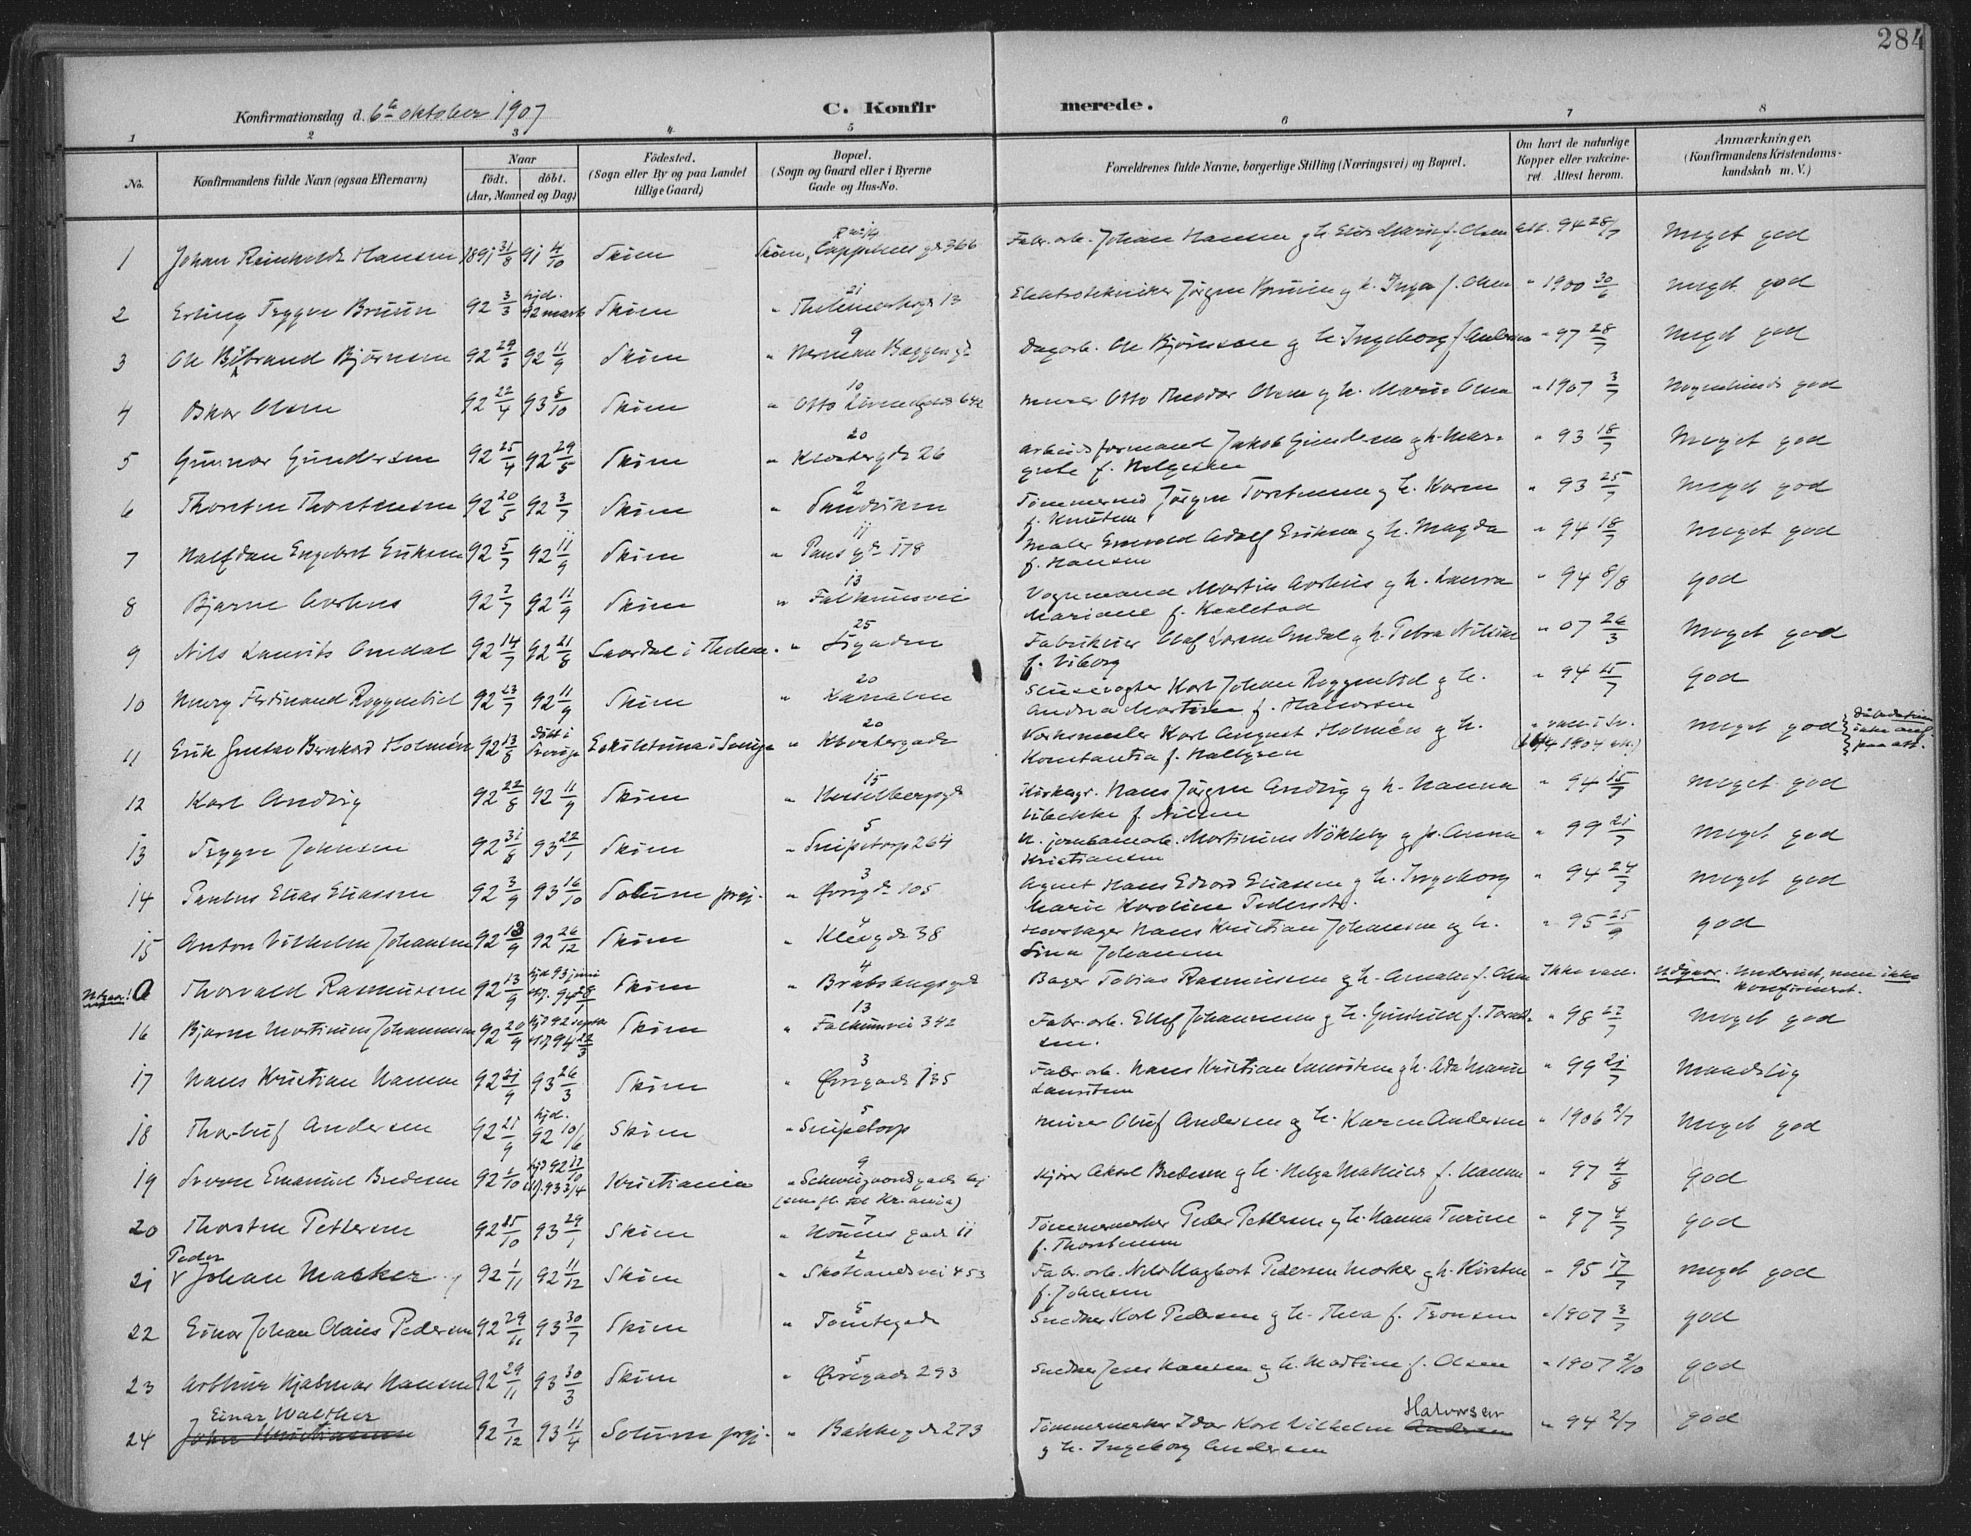 284
Konfirmationsdag d. 6te oktober 1907
C. Konfir merede.
1 2 3 4 5 6 7 8
No. Konfirmandens fulde Navn (ogsaa Efternavn) Naar født. døbt. (Aar, Maaned og Dag) Fødested. (Sogn eller By og paa Landet tillige Gaard) Bopæl. (Sogn og Gaard eller i Byerne Gade og Hus-No. Forældrenes fulde Navne, borgerlige Stilling (Næringsvei) og Bopæl. Om havt de naturlige Kopper eller vakcineret Attest herom. Anmærkninger, (Konfirmandens Kristendomskundskab m. V.)
1 Johan Reinholdt Hansen 1891 31/8 91 4/10 Skien Skien, Cappelens gd 366 Fabr. arb. Johan Hansen g h. Elise Marie f. Olsen att. 94 28/7 Meget god
2 Erling Trygve Bruun 92 3/3 hjd. 92 Skien " 21 Thelemarksgd 13 Elektrotekniker Jørgen Bruun g h. Inga f. Olsen " 1900 30/6 meget god
3 Ole Bjørnsen 92 29/3 92 11/9 Skien " 9 Herman Baggers gd Dagarb. Ole Bjørnsen g h. Ingeborg f. Andersen " 97 28/7 Meget god
4 Oskar Olsen 92 22/4 93 8/10 Skien " 10 Murer Otto Theodor Olsen g h. Marie Olsen " 1907 3/7 Nogenlunde god
5 Gunnar Gundersen 92 25/4 92 29/5 Skien " 20 Klostergd 26 Arbeidsformand Jakob Gundersen g h. Margrete f. Helgesen " 93 18/7 Meget god
6 Thorsten Thorstensen 92 20/5 92 3/7 Skien " 2 Sandviken Tømmermd Jørgen Torstensen g h. Karen f. Knutsen " 93 25/7 Meget god
7 Halfdan Engebret Eriksen 92 5/7 92 11/9 Skien " 11 178 Maler Adolf Eriksen g h. Magda f. Hansen " 94 18/7 Meget god
8 Bjarne Aarhus 92 7/7 92 11/9 Skien " 13 Falkumsvei Vognmand Martin Aarhus g h. Laura Mariane f. " 94 8/8 god
9 Nils Laurits Omdal 92 14/7 92 21/8 Laardal i Thelem. " 25 Ligaden Fabrikeier Olaf Omdal g h. Petra Nilsine f. Viborg " 07 26/3 Meget god
10 Henry Ferdinand Roggenbid 92 23/7 92 11/9 Skien " 20 Kanalen Slusevogter Karl Johan g h. Andrea Martine f. Halvorsen " 94 25/7 God
11 Erik Gustav Bernhard Holmén 92 13/8 døbt i Sverige Eskilstuna i Sverige " 20 Klostergade Verksmester Karl August Holmén g h. Konstantia f. " vacc. i Sv. 1904 att.) Meget god { Dåbsdatum ikke anf. paa att.
12 Karl Andvig 92 22/8 92 11/9 Skien " 15 Hesselbergsgd Kirkegr. Hans Jørgen Andvig g h. Hanna Vibekke f. Nilsen " 94 15/9 meget god
13 Trygve Johnsen 92 31/8 93 22/1 Skien " 5 Snipetorp 264 jernbanearb. Martinius Nøkleby g p. Anna Kristiansen " 99 21/7 meget god
14 Paulus Elias Eliassen 92 3/9 93 16/10 Solum prgj. " 3 Øvregd 105 Agent Hans Edvard Eliassen g h. Ingeborg Marie Karoline Pedersdtr. " 94 24/7 Meget god
15 Anton Vilhelm Johansen 92 13/9 92 26/12 Skien " 4 Klevgd 38 Hovslager Hans Kristian Johansen g h. Lina Johansen " 95 25/9 god
Udgaar! a Thorvald Rasmussen 92 13/9 hjd 93 juni Skien " 4 Brubakgd Bager Tobias Rasmussen g h. Amalie f. Olsen Ikke vacc. Udgaar. Undervist, men ikke konfirmeret.
16 Bjarne Martinius Johannessen 92 20/9 hjd 92 94 22/3 Skien " 13 Falkumsvei 342 Fabr. arb. Ellef Johannessen g h. Gunhild f. " 98 27/7 Meget god
17 Hans Kristian Hansen 92 21/9 93 26/3 Skien " 3 Øvregade 135 Fabr. arb. Hans Kristian Lauritsen g h. Ada Marie Lauritsen " 99 21/7 Maadelig
18 Thorleif Andersen 92 21/9 hjd. 92 10/6 Skien " 5 Snipetorp Murer Oluf Andersen g h. Karen Andersen " 1906 2/7 Meget god
19 Sverre Emanuel Bredesen 92 1/10 hjd 92 17/10 93 3/4 Kristiania " 9 Schweigaardsgade (som fl. til Kr.ania) Kjører Aksel Bredesen g h. Helga Mathilde f. Hansen " 97 4/8 god
20 Thorsten Pettersen 92 25/10 93 29/1 Skien " 7 gade 11 Tømmermerker Peder Pettersen g h. Hanna Turine f. Thorstensen " 97 4/7 god
21 Peder Johan Mæeker 92 1/11 92 11/12 Skien " 2 Skotlandsvei 453 Fabr. arb. Nils Hagbart Pedersen Mæker g h. Kirsten f. Johnsen " 95 17/7 meget god
22 Einar Johan Claus Pedersen 92 29/11 93 30/7 Skien " 5 Tomtegade Snedker Karl Pedersen g h. Thea f. Tronsen " 1907 3/7 god
23 Arthur Hjalmar Hansen 92 29/11 93 30/3 Skien " 5 Øvregade 293 Snedker Jens Hansen g h. Martine f. Olsen " 1907 2/10 god
24 Einar Walther John Kristiansen 92 7/12 93 11/4 Solum prgj. " Bakkegd 273 Tømmermerker Idar Karl Vilhelm Halvorsen Andersen g h. Ingeborg Andersen " 94 2/7 god